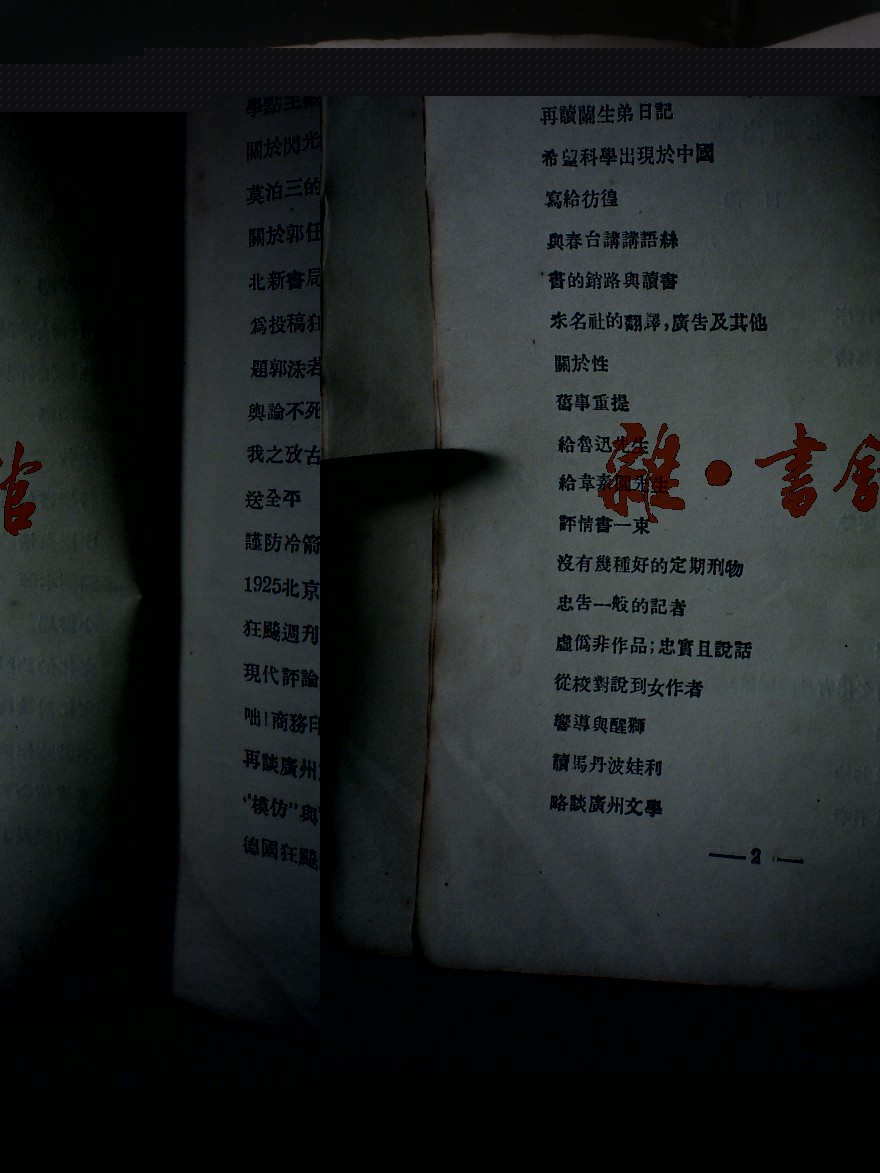 學點主觀
關於閃光
莫泊三的
關於郭任
北新書局
爲投稿狂
題郭洙若
輿論不死
我之攷古
送全平
謹防冷箭
1925北京
狂飈週刋
現代評論
咄!商務印
再談廣州
“模仿”與
德國狂飈
再讀蘭生弟日記
希望科學出現於中國
寫給彷徨
與春台講講語絲
書的銷路與讀書
未名社的翻譯,廣告及其他
關於性
舊事重提
給魯迅先生
給韋素園先生
評情書一束
沒有幾種好的定期刑物
忠告一般的記者
虛僞非作品;忠實且說話
從校對說到女作者
響導與醒獅
讀馬丹波娃利
略談廣州文學
— 2 —
館
雜·書館